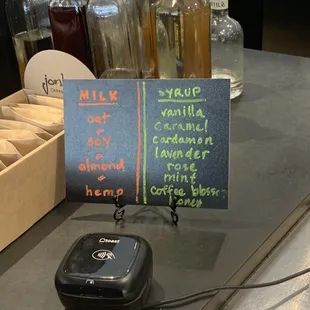 MILK
oat
soy
almond
hemp
SYRUP
vanilla
caramel
cardamon
lavender
rose
mint
coffee blossom
honey
toast